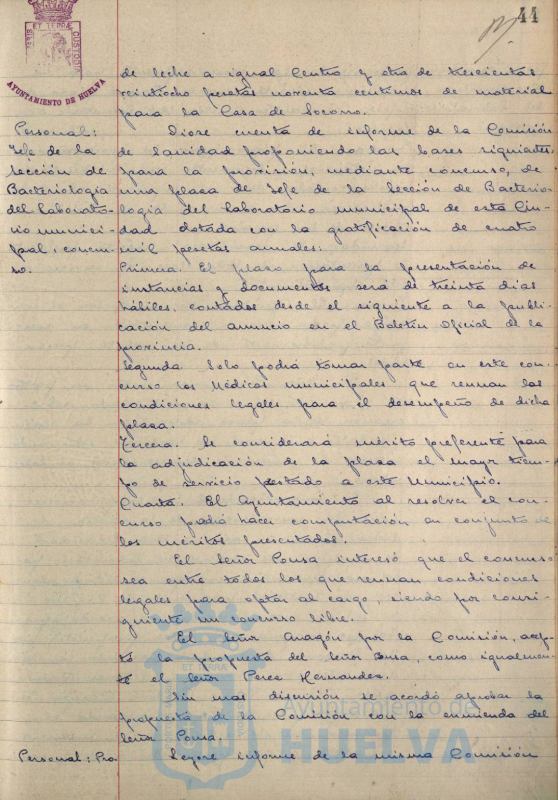 44
SIGILL ET TERRÆ CUSTODIA
AYUNTAMIENTO DE HUELVA
de leche a igual Centro y otra de trescientas
veintiocho pesetas noventa centimos de material
para la Casa de Socorro.
Personal:
Jefe de la
Sección de
Bacteriologia
del Laborato-
rio munici-
pal, concur-
so.
Diose cuenta de informe de la Comisión
de Sanidad proponiendo las bases siguientes
para la provisión, mediante concurso, de
una plaza de Jefe de la Sección de Bacterio-
logia del Laboratorio municipal de esta Ciu-
dad dotada con la gratificación de cuatro
mil pesetas anuales:
Primera. El plazo para la presentación de
instancias y documentos será de treinta dias
hábiles, contados desde el siguiente a la publi-
cación del anuncio en el Boletin Oficial de la
provincia.
Segunda. Solo podrá tomar parte en este con-
curso los Médicos municipales que reunan las
condiciones legales para el desempeño de dicha
plaza.
Tercera. Se considerará mérito preferente para
la adjudicación de la plaza el mayor tiem-
po de servicio prestado a este Municipio.
Cuarta. El Ayuntamiento al resolver el con-
curso podrá hacer computación en conjunto de
los méritos presentados.
El Señor Ponsa interesó que el concurso
sea entre todos los que reunan condiciones
legales para optar al cargo, siendo por consi-
guiente un concurso libre.
El Señor Aragón por la Comisión, acep-
tó la propuesta del Señor Ponsa, como igualmen-
te el Señor Perez Hernandez.
Sin mas discusión se acordó aprobar la
propuesta de la Comisión con la enmienda del
Señor Ponsa.
Ayuntamiento de
HUELVA
Personal: Pro.
Leyose informe de la misma Comisión